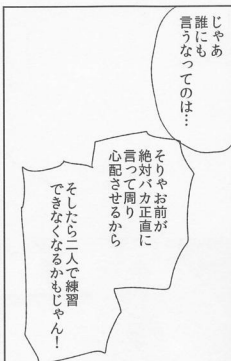 じゃあ
誰にも
言うなってのは…
そりゃお前が
絶対バカ正直に
言って周り
心配させるから
そしたら二人で練習
できなくなるかもじゃん！